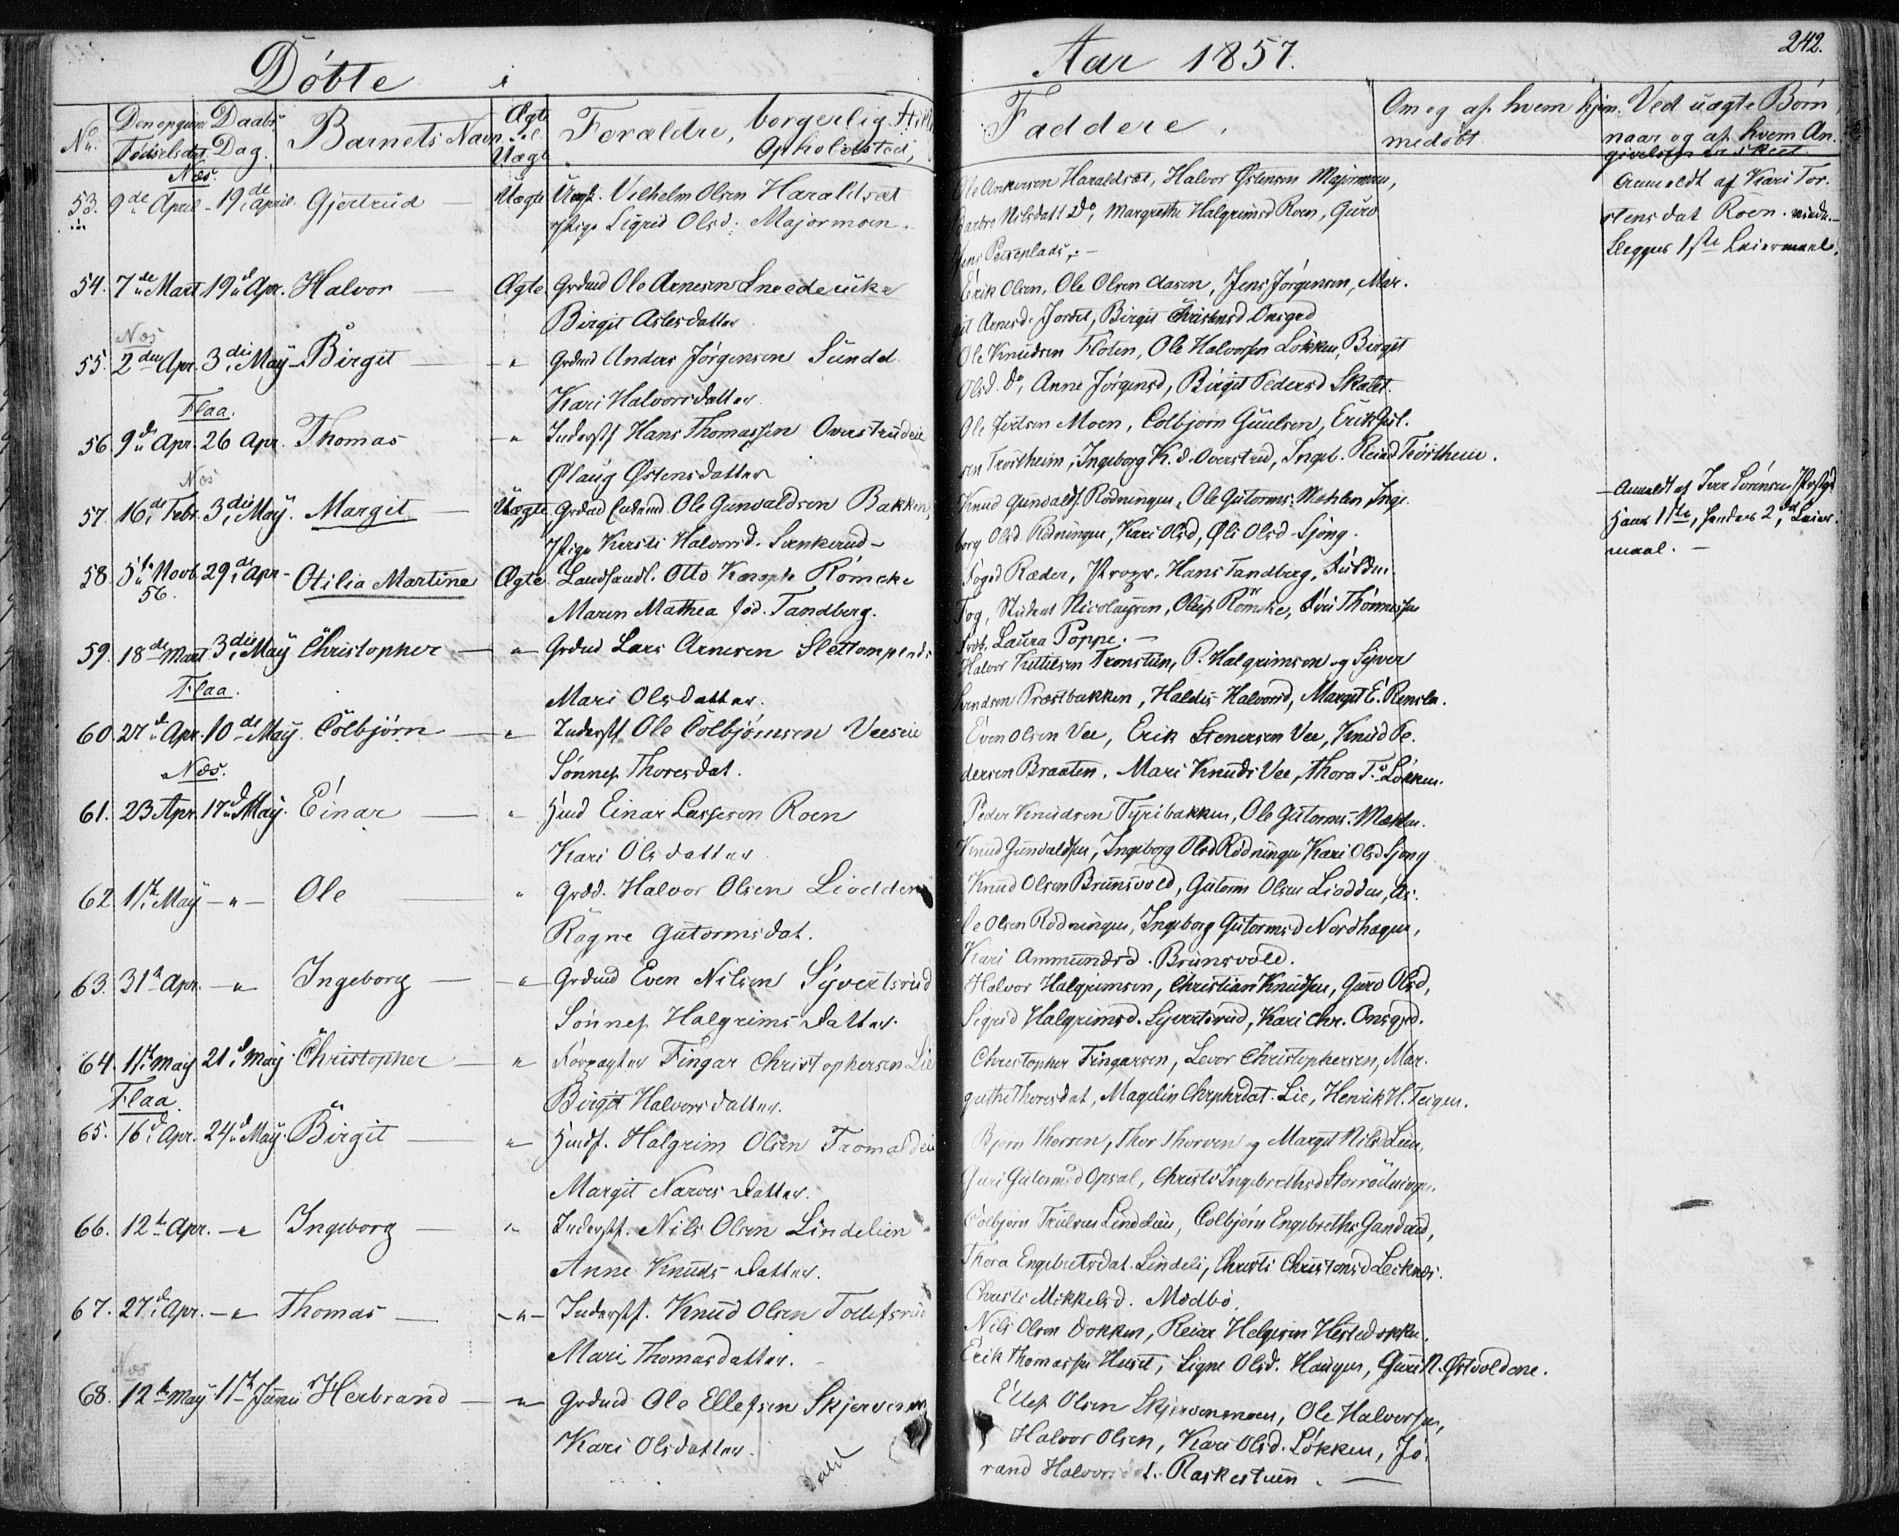 Døbte i Aar 1857. 242.
No. Den opgivne Fødselsdat. Daabs Dag. Barnets Navn Ægte el. Uægt Forældre, borgerlig Still. Opholdsted, Faddere. Om og af hvem hjem medøbt. Ved uægte Børn naar og af hvem Angivelsen er skeet
Næs.
53. 9de April 19de April. Gjertrud Uægte Ungk. Vilhelm Olsen Haraldset
Pige Sigrid Olsd. Majormoen.
Ole Ankersen Haraldset, Halvor Østensen Majormoen,
Barbro Nilsdatt Do, Margrethe Halgrimsd Roen, Guro
Jens Persenplads.
Anmeldt af Kari Tor-
stensdat Roen.
Begges 1ste Leiermaal.
54. 7de Mart 19d Apr. Halvor — Ægte Grdmd Ole Arnesen
Birgit Aslesdatter
Erik Olsen, Ole Olsen Aasen, Jens Jørgensen, Mar-
git Arnesd. Jordet, Birgit Christensd Onsgrd
Næs
55. 2den Apr. 3die May Birgit — " Grdmd Anders Jørgensen Sundet
Kari Halvorsdatter.
Ole Knudsen Floten, Ole Halvorsen Løkken, Birgit
Olsd. Do, Anne Jørgensd, Birgit Pedersd Skolet
Flaa.
56. 9d Apr. 26 Apr. Thomas — " Inderst Hans Thomassen Overstrudeie
Ølaug Østensdatter
Ole Moen, Colbjørn Guulsen, Erik Gul-
sen Trostheim, Ingeborg K.d. Overstrud, Ingeb. Reiard Trøstheim.
Næs
57. 16de Febr. 3die May. Margit — Uægte Grdmd Enkemd. Ole Gunvaldsen Bakken,
Pige Kirsti Halvorsd. Svenkerud
Knud Gunvalds. Rødningen, Ole Gutorms. Mæhlen, Inge-
borg Olsd Rødningen, Kari Olsd, Øli Olsd Sjong.
Anmeldt af Iver Sørensen
Hans 1ste, hendes 2det Leier-
maal. —
58. 5te Novb. 56. 29de Apr. Otilia Martine Ægte Landhandl. Otto Rømcke
Maren Mathea fød. Tandberg.
Foged Ræder, Propr. Hans Tandberg,
Fog, Student Nicolaysen, Oluf Römcke,
Frøk. Laura Poppe. —
59. 18de Mart 3die May Christopher — " Grdmd Lars Arnesen Slettompens
Mari Olsdatter.
Halvor Kittilsen Tronstun, P. Halgrimsen og Syver
Svendsen Præstbakken, Haldis Halvorsd, Margit E. Rensla.
Flaa.
60. 27d Apr. 10de May. Colbjørn — " Inderst Ole Colbjørnsen Veeseie
Sønnef Thoresdat.
Even Olsen Vee, Erik Stenersen Vee, Knud Pe-
dersen Braaten, Mari Knuds Vee, Thora T.s Løkken.
Næs.
61. 23 Apr. 17d May. Einar — " Hmd Einar Larssson Roen
Kari Olsdatter
Peder Knudsen Tyribakken, Ole Gutorms. Mæhlen.
Knud Gunvaldsen, Ingeborg Olsd Rødningen, Kari Olsd Sjong
62. 1ste May — " — Ole — " Grdmd. Halvor Olsen Liodden
Ragne Gutormsdat.
Knud Olsen Brunsvold, Gutorm Olsen Liodden, As-
le Olsen Rødningen, Ingeborg Gutormsd Nordhagen,
Kari Ammundsd. Brunsvold.
63. 31te Apr. — " Ingeborg — " Grdmd Even Nilsen Syvertsrud
Sønnef Halgrimsdatter.
Halvor Halgrimsen, Christian Knudsen, Guro Olsd,
Sigrid Halgrimsd. Syvertsrud, Kari Chr. Onsgrd.
64. 11te May 21d May Christopher — " Forpagter Fingar Christophersen Lie
Birgit Halvorsdatter.
Christopher Fingarsen, Levor Christophersen, Mar-
grethe Thoresdat, Magelin Chrphrdat. Lie, Henrik H. Feigen.
Flaa.
65. 16d Apr. 24d May. Birgit — " Hmdf. Halgrim Olsen Tromaldeie
Margit Narvesdatter.
Bjørn Thorsen, Thor Thorsen og Margit Nilsd Lien,
Guri Gutormsd Opsal, Christi Ingebrethsd Storrødningen.
66. 12te Apr. — " Ingeborg — " Inderst. Nils Olsen Lindelien
Anne Knudsdatter.
Colbjørn Truelsen Lindelien, Colbjørn Engebreths Gandrud,
Thora Engebretsdat. Lindeli, Christi Christensd
Christi Mikkelsd. Modbø.
67. 27d Apr. — " Thomas — — " — Inderst. Knud Olsen Tollefsrud
Mari Thomasdatter.
Nils Olson Dokken, Reiar Helgesen Hestedokken.
Erik Thomassen Huset, Signe Olsd. Haugen, Guri N. Østvoldene.
Næs
68. 12te May 11te Junii Herbrand — " Grdmd Ole Ellefsen Skjerven
Kari Olsdatter.
Ellef Olsen Skjervenmoen, Ole Halvorsen,
Halvor Olsen, Kari Olsd. Løkken, Jø-
rand Halvorsdat. Raskestuen. —